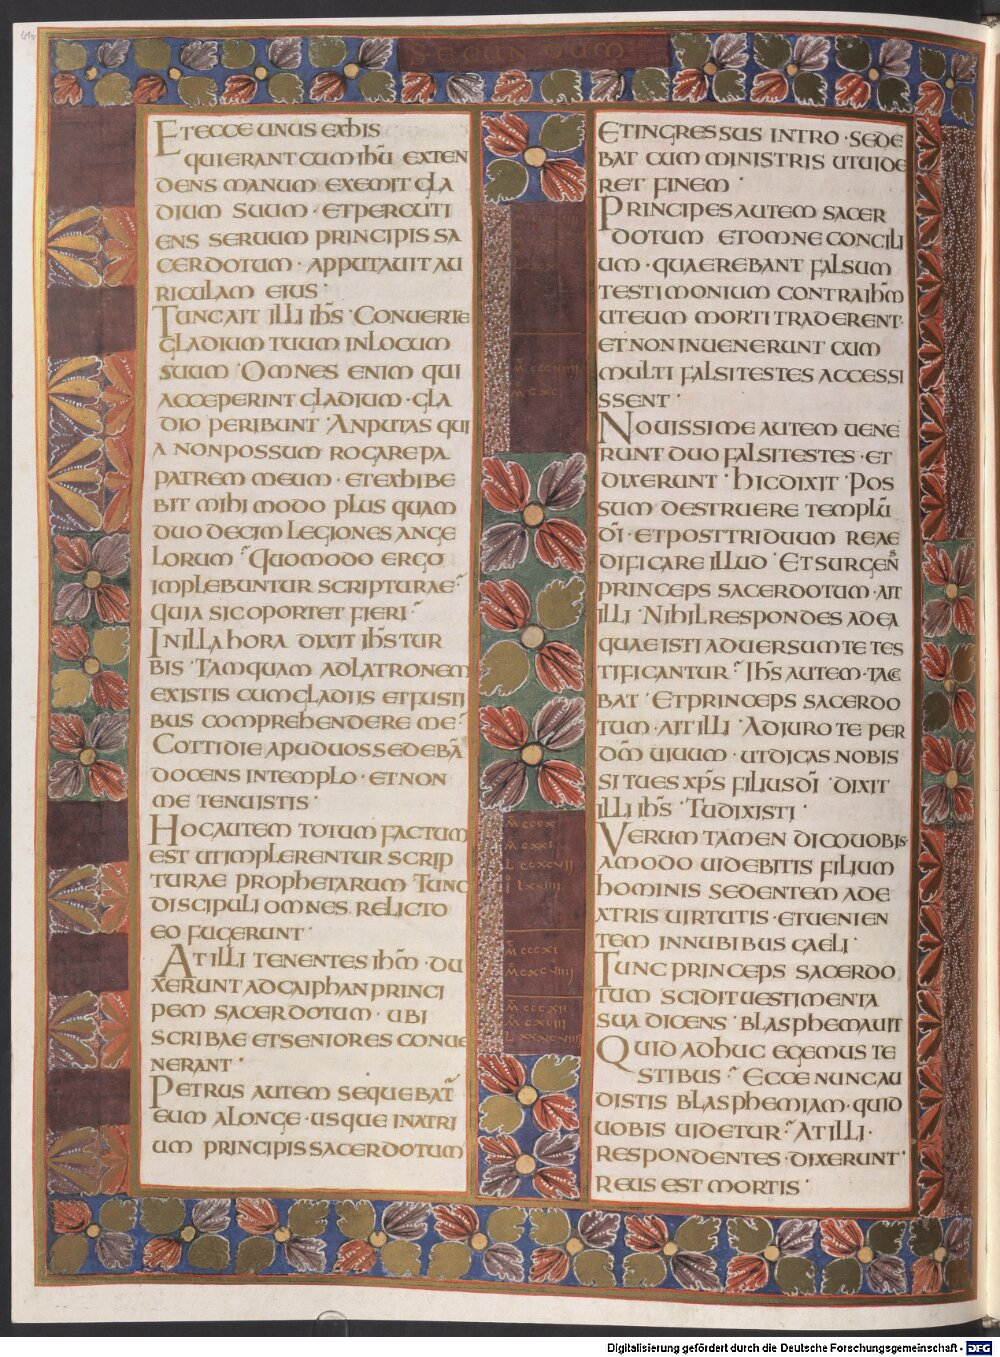 SECUNDUM
ET ECCE UNUS EXHIS
QUIERANT CUM IHŪ EXTEN
DENS MANUM EXEMIT GLA
DIUM SUUM · ETPERCUTI
ENS SERUUM PRINCIPIS SA
CERDOTUM · APPUTAUIT AU
RICULAM EIUS ·
TUNC AIT ILLI IHS̄ · CONUERTE
GLADIUM TUUM INLOCUM
SUUM · OMNES ENIM QUI
ACCEPERINT GLADIUM · GLA
DIO PERIBUNT · ANPUTAS QUI
A NONPOSSUM ROGARE PA
PATREM MEUM · ETEXHIBE
BIT MIHI MODO PLUS QUAM
DUODECIM LEGIONES ANGE
LORUM · QUOMODO ERGO
IMPLEBUNTUR SCRIPTURAE ·
QUIA SIC OPORTET FIERI ·
INILLA HORA DIXIT IHS̄ TUR
BIS · TAMQUAM ADLATRONEM
EXISTIS CUMGLADIIS ETFUSTI
BUS COMPREHENDERE ME ·
COTTIDIE APUDUOS SEDEBĀ
DOCENS INTEMPLO · ETNON
ME TENUISTIS ·
HOC AUTEM TOTUM FACTUM
EST UTIMPLERENTUR SCRIP
TURAE PROPHETARUM TUNC
DISCIPULI OMNES RELICTO
EO FUGERUNT ·
AT ILLI TENENTES IHM̄ · DU
XERUNT ADCAIPHAN PRINCI
PEM SACERDOTUM · UBI
SCRIBAE ETSENIORES CONUE
NERANT ·
PETRUS AUTEM SEQUEBAT̄
EUM ALONGE · USQUE INATRI
UM PRINCIPIS SACERDOTUM
M̄ CCCX
M̄ CXXI
L CCXCVII
I LXXIIII
M̄ CCCXI
M̄ CXCVIIII
M̄ CCCXII
ETINGRESSUS INTRO · SEDE
BAT CUM MINISTRIS UTUIDE
RET FINEM ·
PRINCIPES AUTEM SACER
DOTUM ETOMNE CONCILI
UM · QUAEREBANT FALSUM
TESTIMONIUM CONTRA IHM̄
UTEUM MORTI TRADERENT ·
ETNON INUENERUNT CUM
MULTI FALSITESTES ACCESSI
SSENT ·
NOUISSIME AUTEM UENE
RUNT DUO FALSITESTES · ET
DIXERUNT · HICDIXIT · POS
SUM DESTRUERE TEMPLŪ
DĪ · ETPOSTTRIDUUM REAE
DIFICARE ILLUD · ET SURGENS
PRINCEPS SACERDOTUM · AIT
ILLI · NIHIL RESPONDES ADEA
QUAE ISTI ADUERSUM TE TES
TIFICANTUR · IHS̄ AUTEM · TACE
BAT · ETPRINCEPS SACERDO
TUM · AIT ILLI · ADIURO TE PER
DM̄ UIUUM · UTDICAS NOBIS
SI TU ES XPS̄ FILIUS DĪ · DIXIT
ILLI IHS̄ · TUDIXISTI ·
VERUM TAMEN DICOUOBIS ·
AMODO UIDEBITIS FILIUM
HOMINIS SEDENTEM ADE
XTRIS UIRTUTIS · ETUENIEN
TEM INNUBIBUS CAELI ·
TUNC PRINCEPS SACERDO
TUM SCIDIT UESTIMENTA
SUA DICENS · BLASPHEMAUIT
QUID ADHUC EGEMUS TE
STIBUS · ECCE NUNC AU
DISTIS BLASPHEMIAM · QUID
UOBIS UIDETUR · AT ILLI ·
RESPONDENTES · DIXERUNT ·
REUS EST MORTIS ·
Digitalisierung gefördert durch die Deutsche Forschungsgemeinschaft - DFG